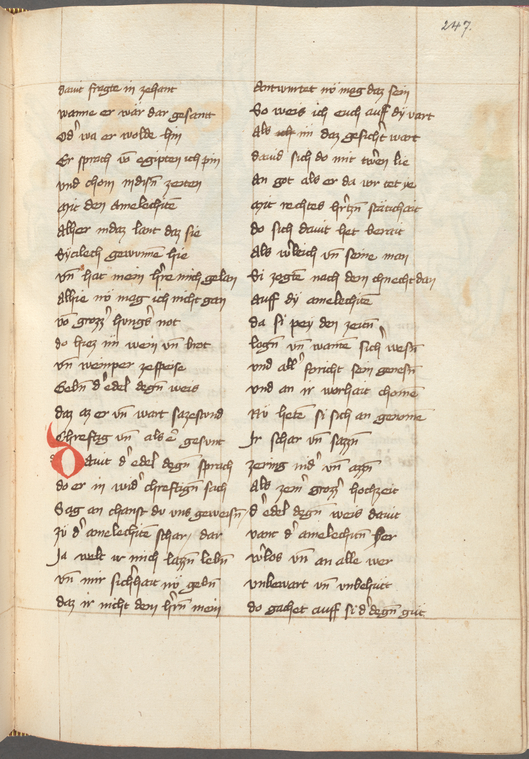 247.
dauit fragte in zehant
wanne er wär dar gesant
Od' wa er wolde hin
Er sprach vō egipten ich pin
vnd chom in disñ zeiten
Mit den amelechite
Alher in daz lant daz sie
Sycilech gewunnen hie
vñ hat mein h're mich gelan
Alhie nv mag ich nicht gan
vō grozz' hung's not
do hiez im wein vñ brot
vñ weinper ze speise
Gebñ d' edel degñ weis
daz az er vñ wart sa ze stund
Chreftig vñ als e gesunt
Dauit d' edel degñ sprach
do er in wid' chreftigñ sach
Sag an chanst du vns geweisñ
zü d' amelechite schar dar
Ja welt ir mich lazñ lebñ
vñ mir sich'hait nv gebñ
daz ir nicht dem h'rñ mein
Antwurtet nv mag daz sein
So weis ich euch auff dy vart
Als im daz gesicht wart
dauid sich do mit trwen lie
An got als er da vor tet ye
Mit rechtes h'rtzñ stätichait
do sich dauit het berait
Als wleich vñ seine man
Si zogte nach dem chnecht dan
Auff dy amelechite
da si pey den zeitñ
logñ vñ wante sich wesñ
vnd all' foricht sein genesñ
vnd an ir warhait chomē
Nv hete si sich an genome
Ir schar vñ sazzñ
zering nid' vñ azzñ
Als zem' grozz' hochzeit
d' edel degñ weis dauit
vant d' amelechitñ her
w'los vñ an alle wer
vnbewart vñ vnbehütt
do gachet auff si d' degñ gut